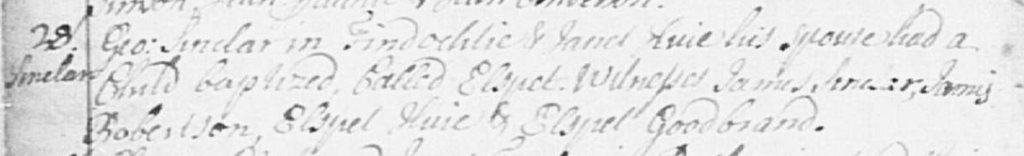 28. Geo: Sinclar in Findochtie & Janet Huie his spouse had a
Sinclar Child baptized, Called Elspet. Witnesses James Sinclar, James
Robertson, Elspet Huie & Elspet Goodbrand.